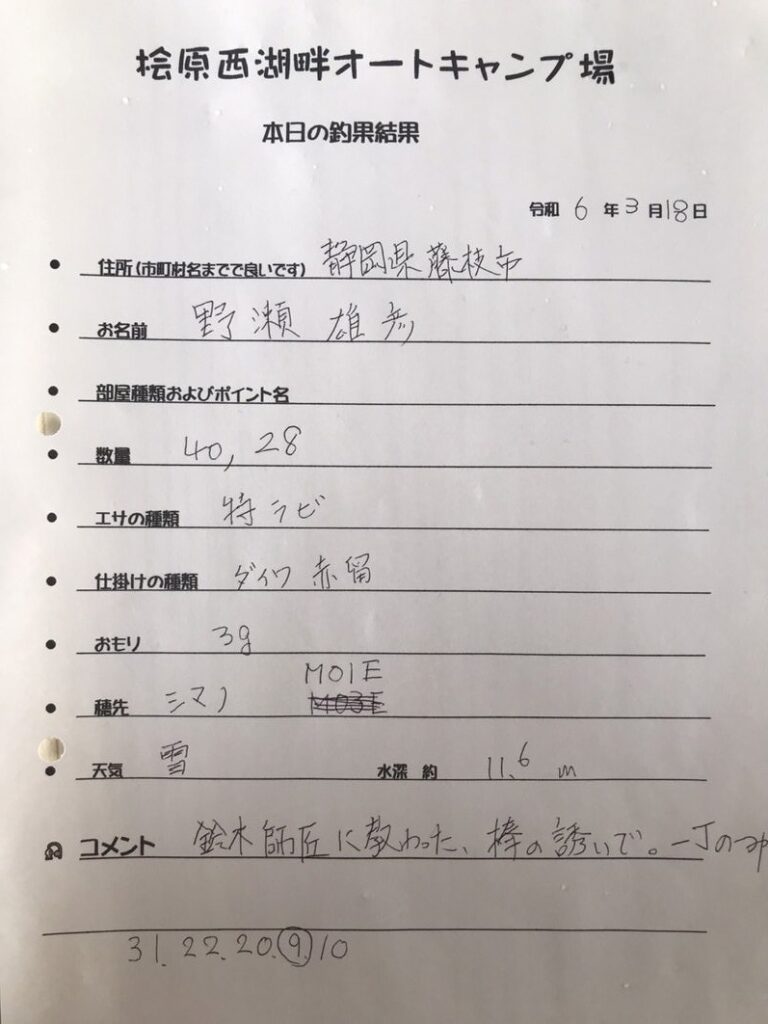 桧原西湖畔オートキャンプ場
本日の釣果結果
令和 6 年 3 月 18 日
住所(市町村名までで良いです) 静岡県藤枝市
お名前 野瀬 雄彦
部屋種類およびポイント名
数量 40, 28
エサの種類 特ラビ
仕掛けの種類 ダイワ 赤留
おもり 3g
M01E
穂先 シマノ M03E
天気 雪 水深 約 11.6 m
コメント 鈴木師匠に教わった、棒の誘いで。一丁のつ
31. 22. 20. 9. 10